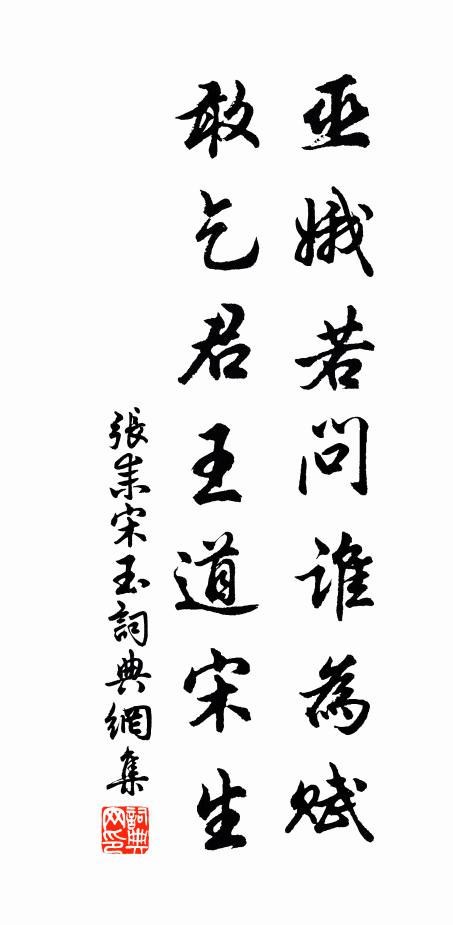 巫娥若問誰為賦
敢乞君王道宋生
張耒宋玉詞典網集
詞典網印